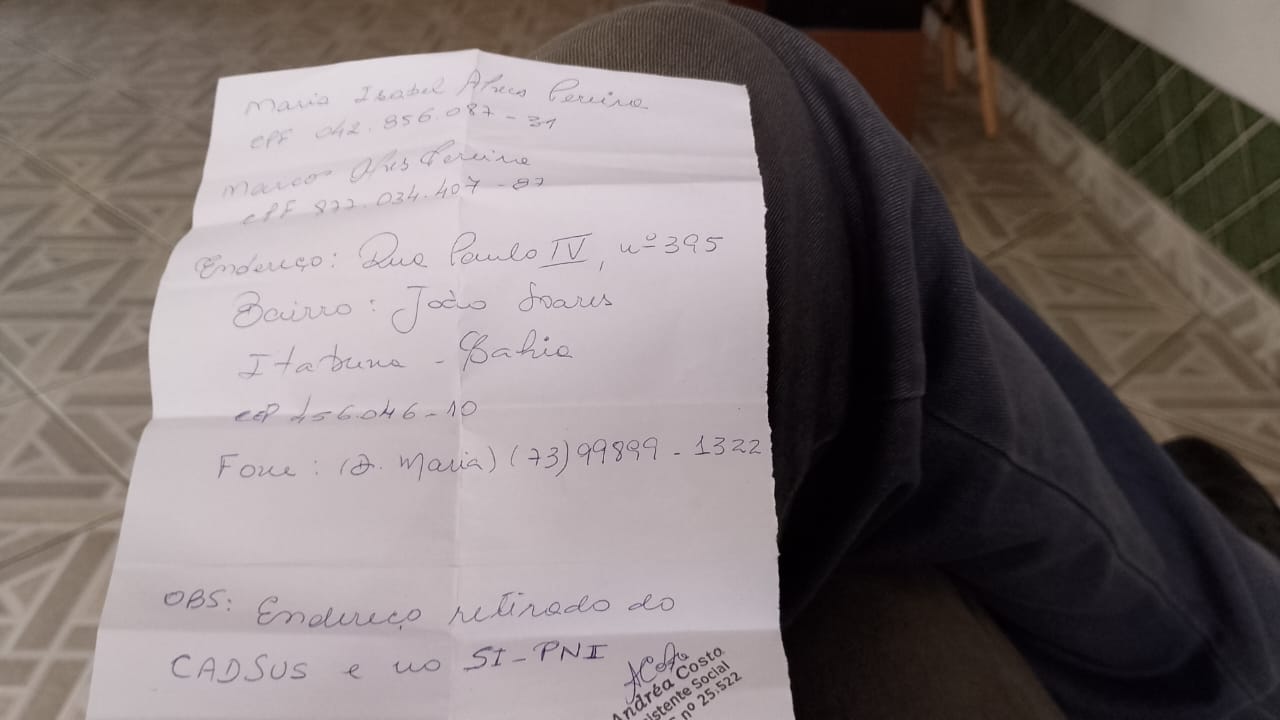 Maria Isabel Alves Pereira
CPF 042.856.087-31
Marcos Alves Pereira
CPF 877.034.407-87
Endereço: Rua Paulo IV, nº 395
Bairro: João Soares
Itabuna - Bahia
CEP 456.046-10
Fone: (D. Maria) (73) 99899-1322
OBS: Endereço retirado do
CADSUS e no SI-PNI
Andréa Costa
istente Social
nº 25.522